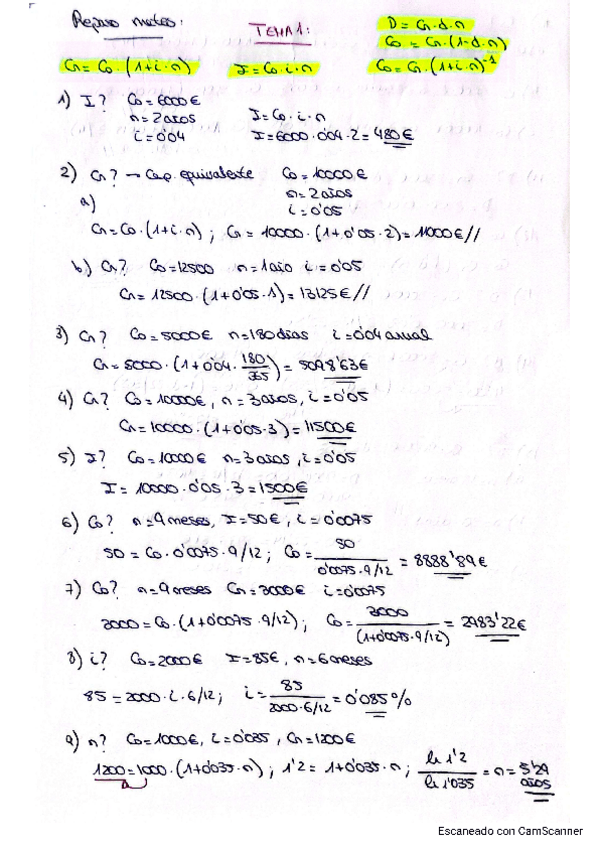 Repaso mates:
TEMA 1:
D = Cn·d·n
Co = Cn·(1-d·n)
Cn = Co·(1+i·n)
I = Co·i·n
Co = Cn·(1+i·n)⁻¹
1) I? Co = 6000€
n = 2 años I = Co·i·n
i = 0'04 I = 6000·0'04·2 = 480€
2) Cn? → Cap. equivalente Co = 10000€
a) n = 2 años
i = 0'05
Cn = Co·(1+i·n); Cn = 10000·(1+0'05·2) = 11000€//
b) Cn? Co = 12500 n = 1 año i = 0'05
Cn = 12500·(1+0'05·1) = 13125€//
3) Cn? Co = 5000€ n = 180 días i = 0'04 anual
Cn = 5000·(1+0'04·180/365) = 5098'63€
4) Cn? Co = 10000€, n = 3 años, i = 0'05
Cn = 10000·(1+0'05·3) = 11500€
5) I? Co = 10000€ n = 3 años, i = 0'05
I = 10000·0'05·3 = 1500€
6) Co? n = 9 meses, I = 50€, i = 0'0075
50 = Co·0'0075·9/12; Co = 50/(0'0075·9/12) = 8888'89€
7) Co? n = 9 meses Cn = 3000€ i = 0'0075
3000 = Co·(1+0'0075·9/12); Co = 3000/(1+0'0075·9/12) = 2983'22€
8) i? Co = 2000€ I = 85€, n = 6 meses
85 = 2000·i·6/12; i = 85/(2000·6/12) = 0'085%
9) n? Co = 1000€, i = 0'035, Cn = 1200€
1200 = 1000·(1+0'035·n); 1'2 = 1+0'035·n; ln 1'2/ln 1'035 = n = 5'29 años
Escaneado con CamScanner